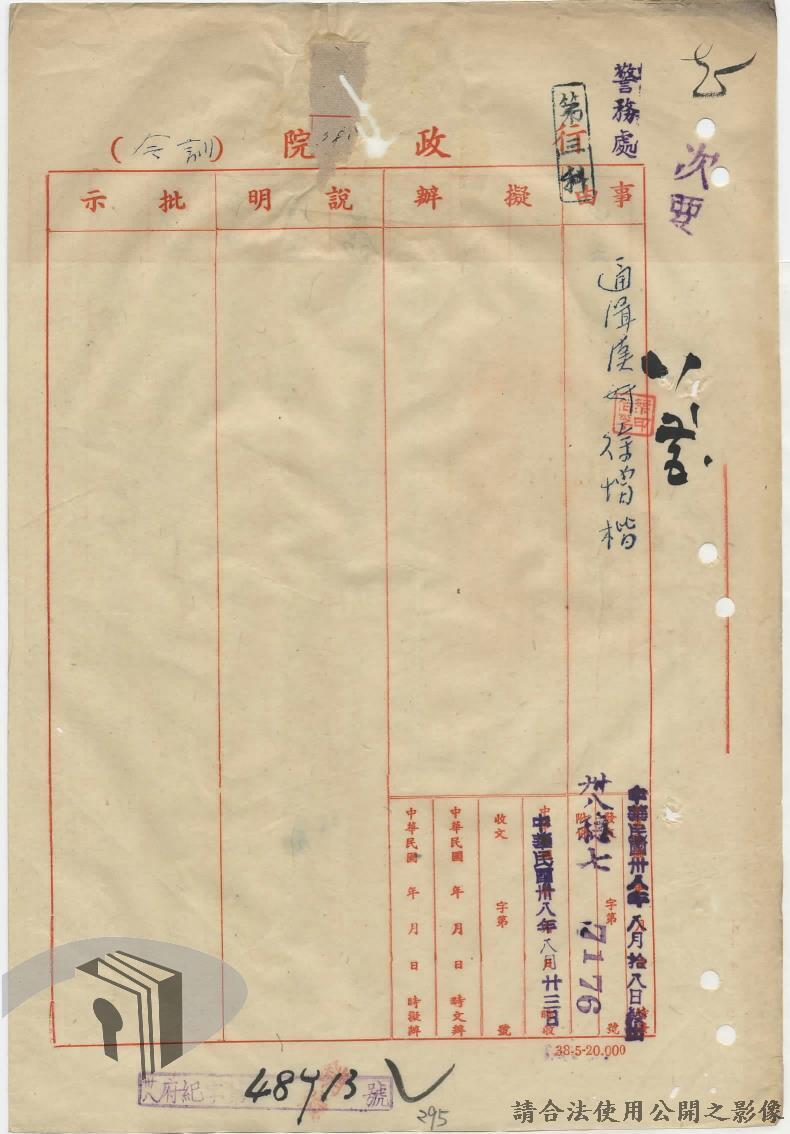 警務處
第三科
次要
行政院(訓令)
事由
擬辦
說明
批示
通緝漢奸徐增楷
中華民國卅八年八月拾八日
發文
字第
號
附件
卅八
七
7176
中華民國卅八年八月廿三日
收文
字第
號
中華民國 年 月 日 時交辦
中華民國 年 月 日 時擬辦
38-5-20.000
府紀
48713
號
295
請合法使用公開之影像